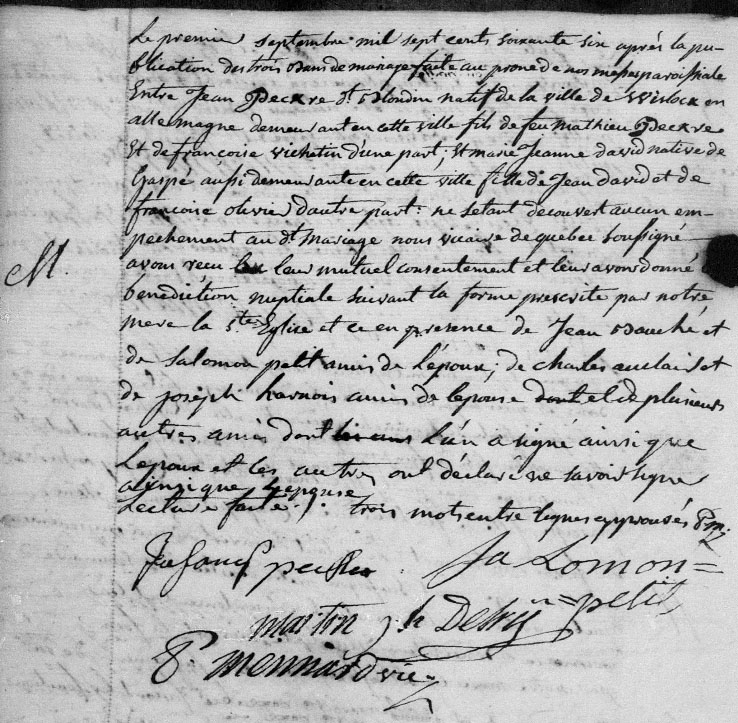 Le premier septembre mil sept cents soixante six après la pu-
blication des trois bans de mariage faite au prone de nos messes paroissiale
Entre Jean Peckre dt Blondin natif de la ville de Wislock en
allemagne demeurant en cette ville fils de feu mathieu Peckre
et de francoise vichetin d'une part, et marie Jeanne david native de
Gaspé aussi demeurante en cette ville fille de Jean david et de
francoise olivier d'autre part: ne s'etant decouvert aucun em-
pechement au dt mariage nous vicaire de quebec soussigné
M.
avons recu leur mutuel consentement et leur avons donné
benediction nuptiale suivant la forme prescrite par notre
mere la ste Eglise et ce en presence de Jean Bauché et
de Salomon petit amis de L'epoux; de charles auclair et
de joseph harnois amis de lepouse et de plusieurs
autres amis dont L'un a signé ainsi que
Lepoux et les autres ont déclaré ne savoir signer
ainsi que Lepouse
Lecture faite ./. trois mots entre lignes approuvés
Salomon =
= petit
martin
P. mennard vic.